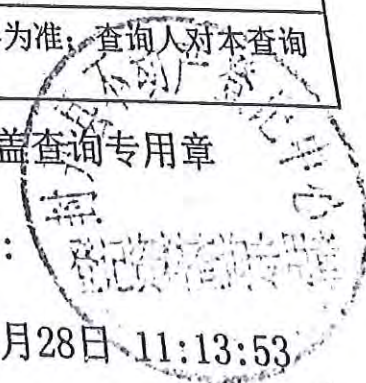 为准；查询人对本查询
盖查询专用章
：
月28日 11:13:53
不动产登记中心
登记资料查询专用章